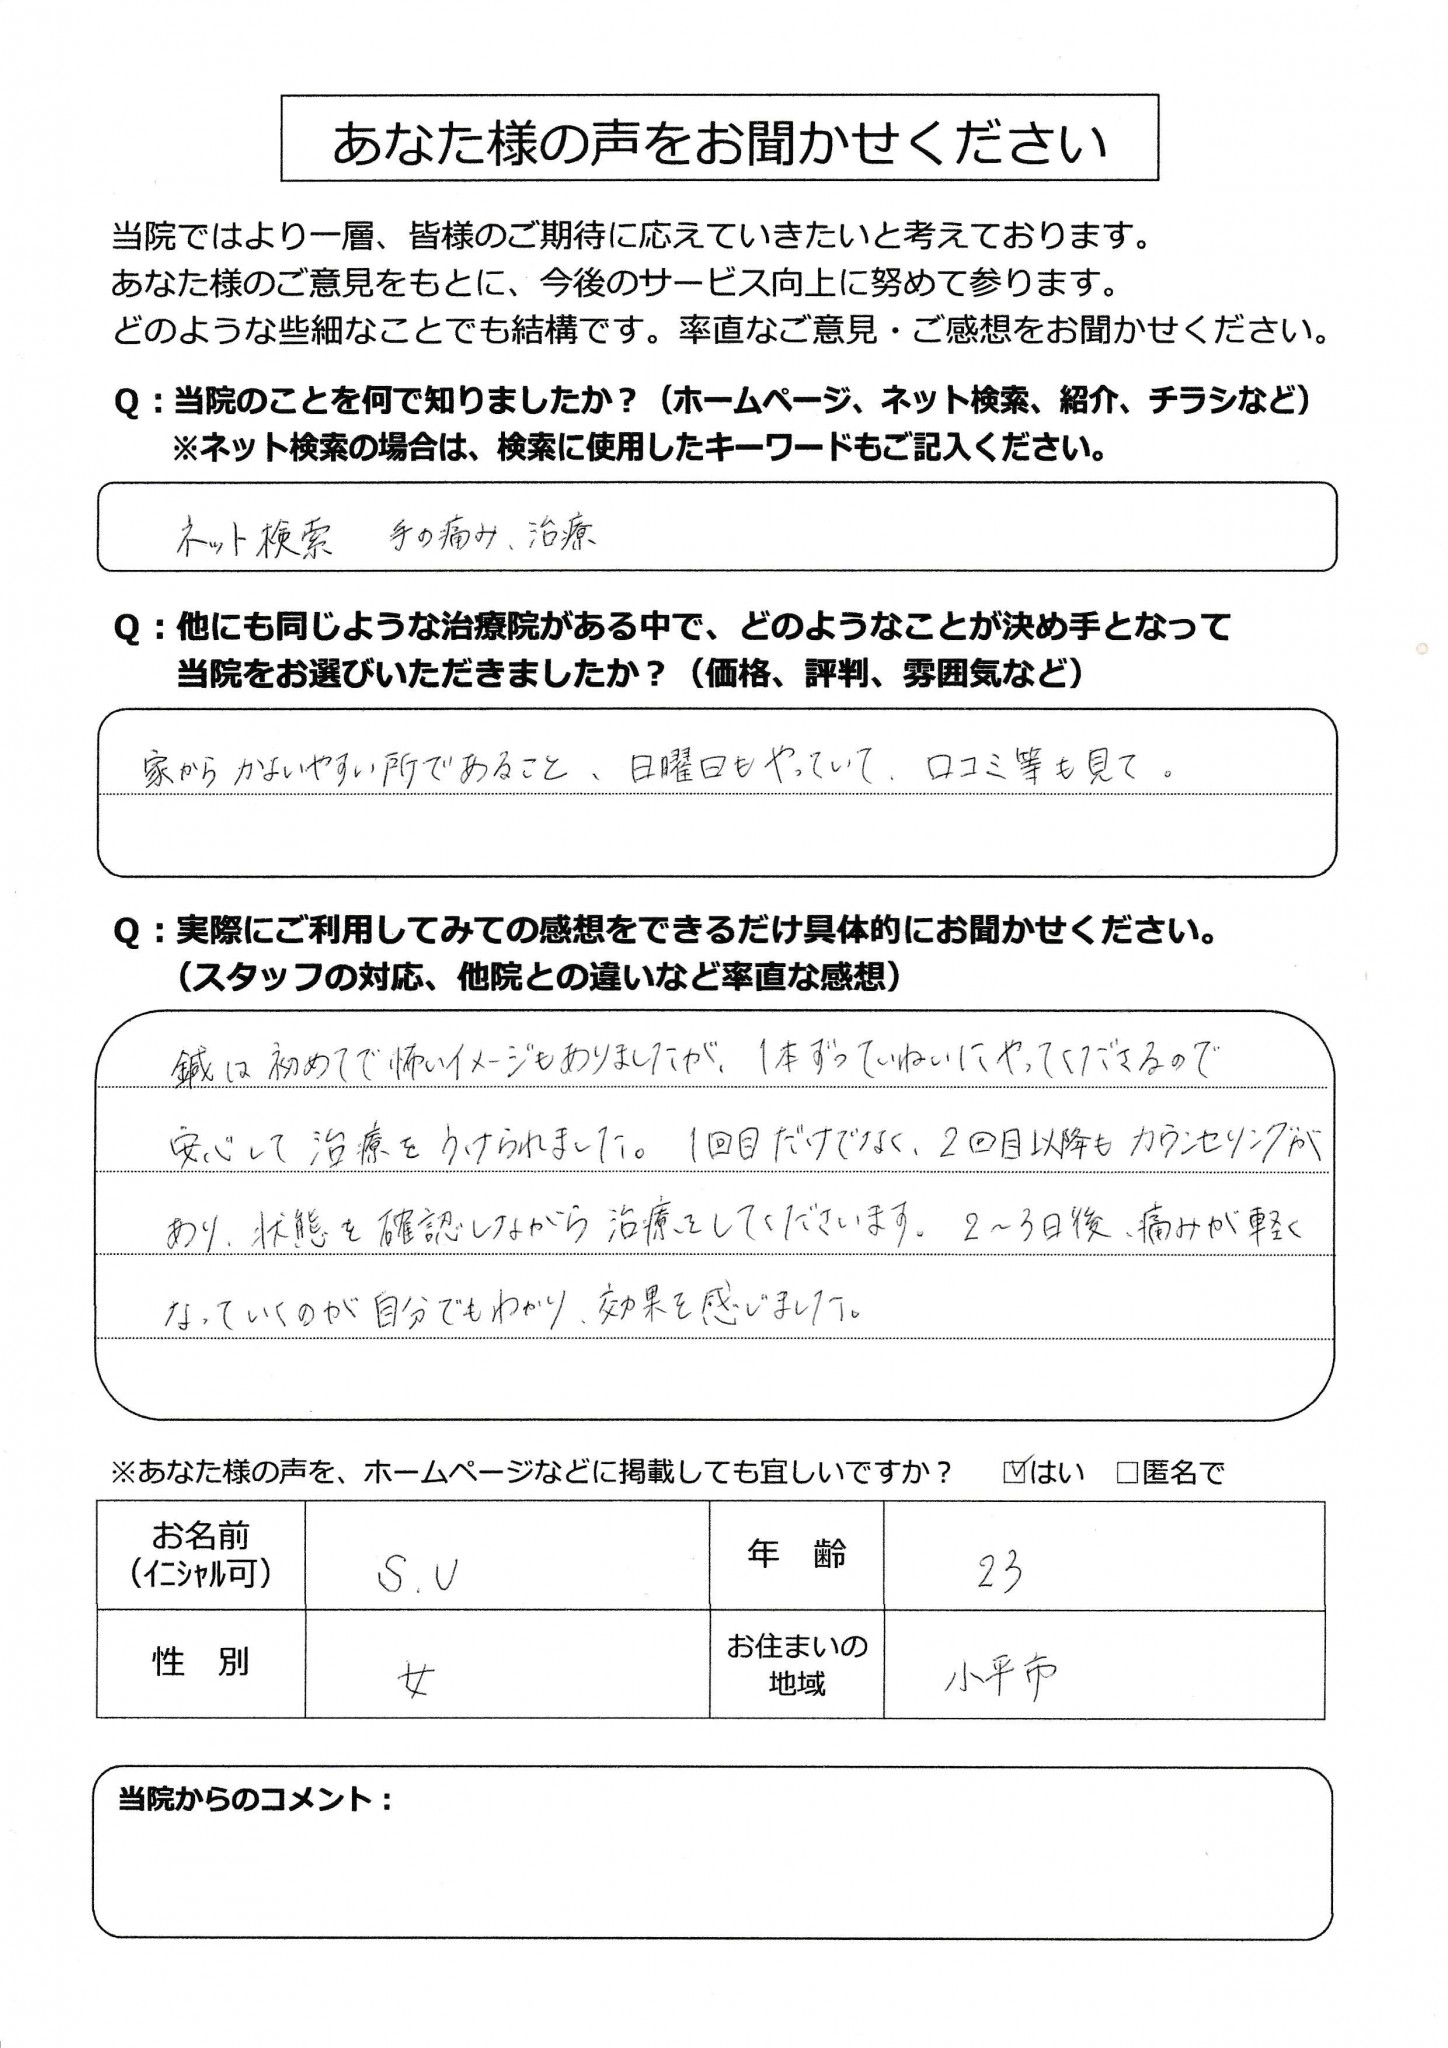 あなた様の声をお聞かせください
当院ではより一層、皆様のご期待に応えていきたいと考えております。
あなた様のご意見をもとに、今後のサービス向上に努めて参ります。
どのような些細なことでも結構です。率直なご意見・ご感想をお聞かせください。
Q：当院のことを何で知りましたか？（ホームページ、ネット検索、紹介、チラシなど）
※ネット検索の場合は、検索に使用したキーワードもご記入ください。
ネット検索　手の痛み、治療
Q：他にも同じような治療院がある中で、どのようなことが決め手となって
当院をお選びいただきましたか？（価格、評判、雰囲気など）
家からかよいやすい所であること、日曜日もやっていて、口コミ等も見て。
Q：実際にご利用してみての感想をできるだけ具体的にお聞かせください。
（スタッフの対応、他院との違いなど率直な感想）
鍼は初めてで怖いイメージもありましたが、1本ずつていねいにやってくださるので
安心して治療をうけられました。1回目だけでなく、2回目以降もカウンセリングが
あり、状態を確認しながら治療をしてくださいます。2～3日後、痛みが軽く
なっていくのが自分でもわかり、効果を感じました。
※あなた様の声を、ホームページなどに掲載しても宜しいですか？　☑はい　□匿名で
お名前
（ｲﾆｼｬﾙ可）
S.U
年　齢
23
性　別
女
お住まいの
地域
小平市
当院からのコメント：